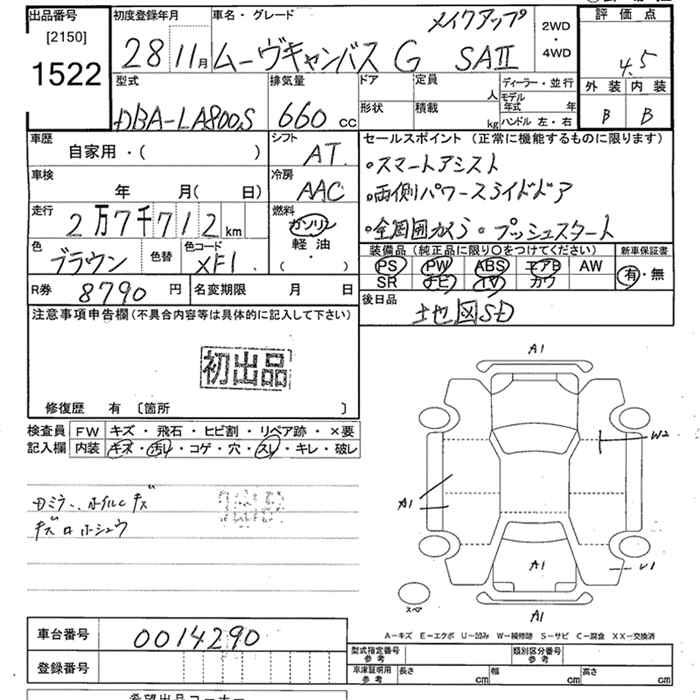 出品番号
[2150]
1522
初度登録年月
28 11月
車名・グレード
メイクアップ
ムーヴキャンバス G SAⅡ
2WD
・
4WD
評価点
4.5
外装 内装
B B
型式
DBA-LA800S
排気量
660 cc
ドア
定員
人
形状
積載
kg
ディーラー・並行
モデル年式 年
ハンドル 左・右
車歴
自家用・( )
シフト
AT
セールスポイント(正常に機能するものに限ります)
・スマートアシスト
・両側パワースライドドア
・全周囲カメラ・プッシュスタート
車検
年 月( 日)
冷房
AAC
走行
2万7千712km
燃料
ガソリン
軽油
( ・ )
色
ブラウン
色替
色コード
XF1.
装備品(純正品に限り○をつけてください)
PS PW ABS エアB AW
SR ナビ TV カワ
新車保証書
有・無
R券
8790円
名変期限 月 日
後日品
地図SD
注意事項申告欄(不具合内容等は具体的に記入して下さい)
初出品
修復歴 有 〔箇所 〕
検査員
記入欄
FW キズ・飛石・ヒビ割・リペア跡・×要
内装 キズ・汚レ・コゲ・穴・スレ・キレ・破レ
ホイルキズ
キズロホシュウ
A1
W2
A1
A1
U1
スペア
A1
A-キズ E-エクボ U-凹み W-補修跡 S-サビ C-腐食 XX-交換済
車台番号
0014290
登録番号
型式指定番号
参考
類別区分番号
参考
車庫証明用
参考
長さ cm
幅 cm
高さ cm
希望出品コーナー